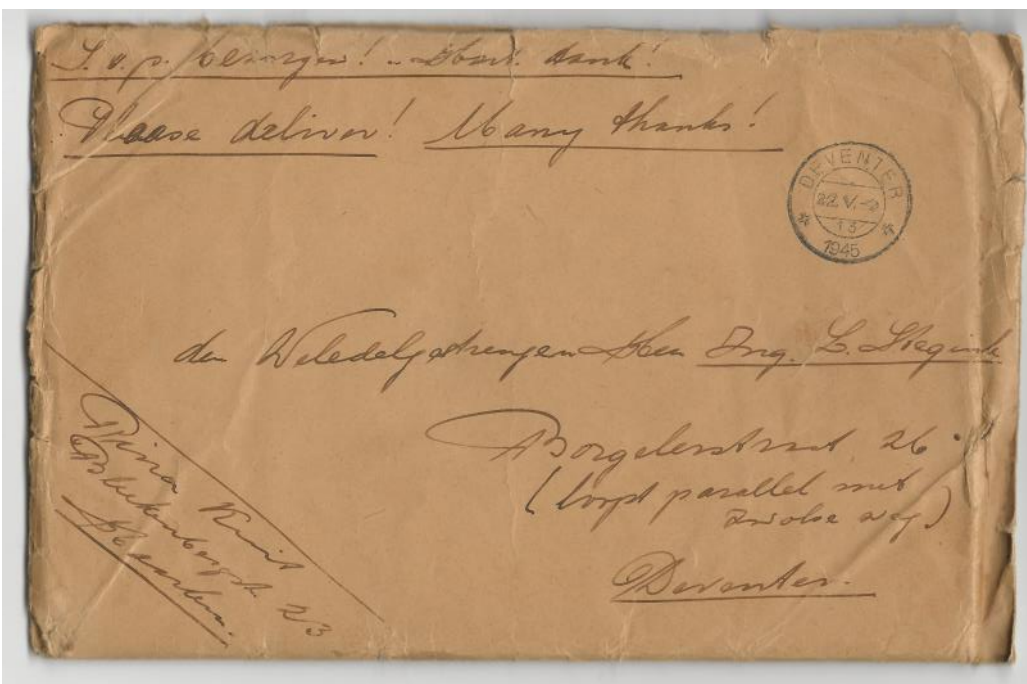 S. v. p. bezorgen! - Hart. dank!
Please deliver! Many thanks!
DEVENTER
22.V.
13
1945
den Weledelgestrengen Heer Ing. L. Stegink
Borgelerstraat 26
(loopt parallel met
Zwolse weg)
Deventer.
Rina
23
Haarlem.